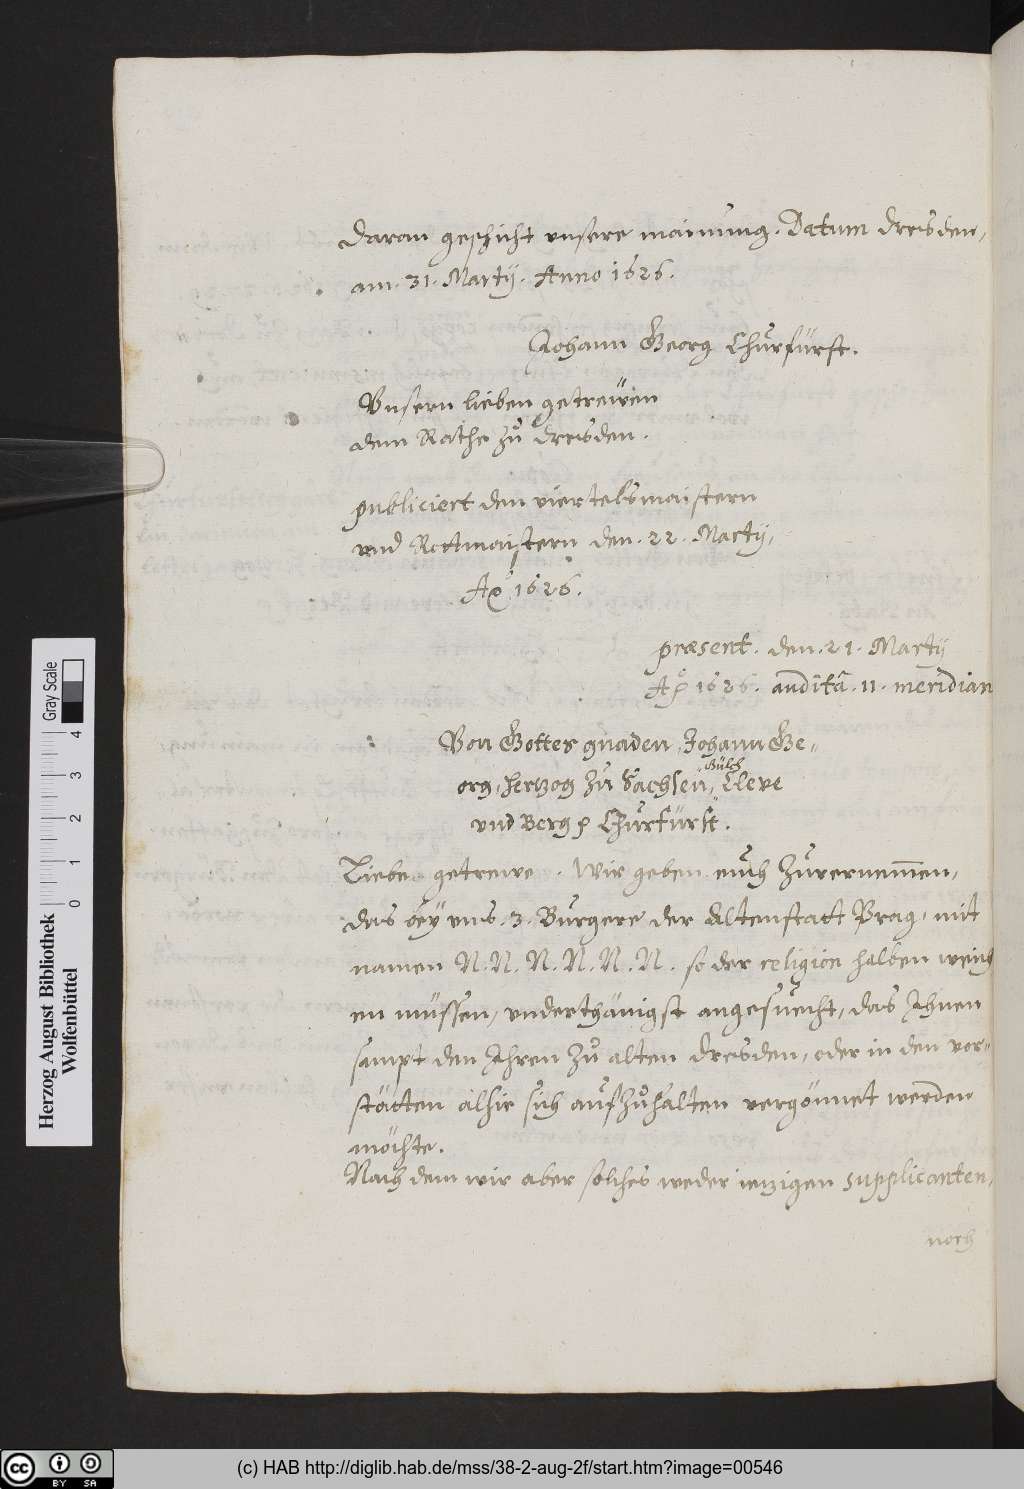 Daran geschicht vnsere mainung. Datum Dresden,
am. 31. Martij. Anno 1626.
Johann Georg Churfürst.
Vnsern lieben getrewen
dem Rathe zu Dresden.
publiciert den viertelsmaistern
vnd Rottmaistern den. 22. Martij,
Ao 1626.
præsent. den. 21. Martij
Ao 1626. audita. 11. meridian
Von Gottes gnaden Johann Ge-
org, Hertzog zu Sachsen, Gülch
Cleve
vnd Berg Churfürst.
Liebe getrewe. Wir geben euch zuvernemmen,
das bey vns. 3. Burgere der Altenstatt Prag, mit
namen N. N. N. N. N. N. so der religion halben weich
en müssen, vnderthänigst angesuecht, das Ihnen
sampt den Ihren zu alten Dresden, oder in den vor-
stätten alhie sich aufzuhalten vergönnet werden
möchte.
Nach dem wir aber solches weder ienzigen supplicanten,
noch
Herzog August Bibliothek
Wolfenbüttel
0 1 2 3 4
Gray Scale
cc BY SA
(c) HAB http://diglib.hab.de/mss/38-2-aug-2f/start.htm?image=00546